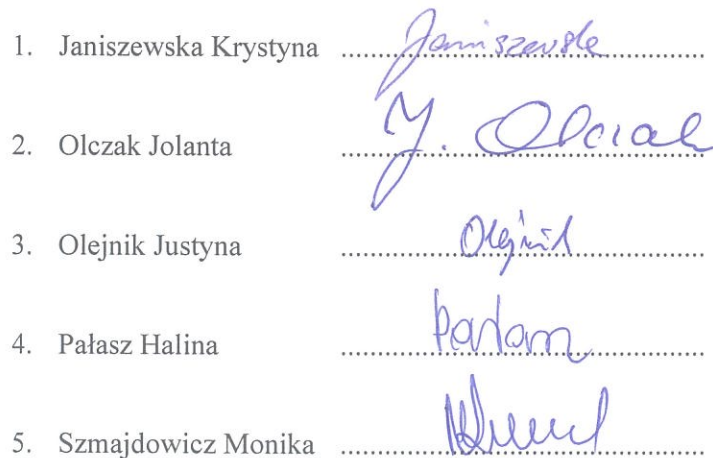 1. Janiszewska Krystyna ........................ Janiszewska
2. Olczak Jolanta ........................ J. Olczak
3. Olejnik Justyna ........................ Olejnik
4. Pałasz Halina ........................
5. Szmajdowicz Monika ........................